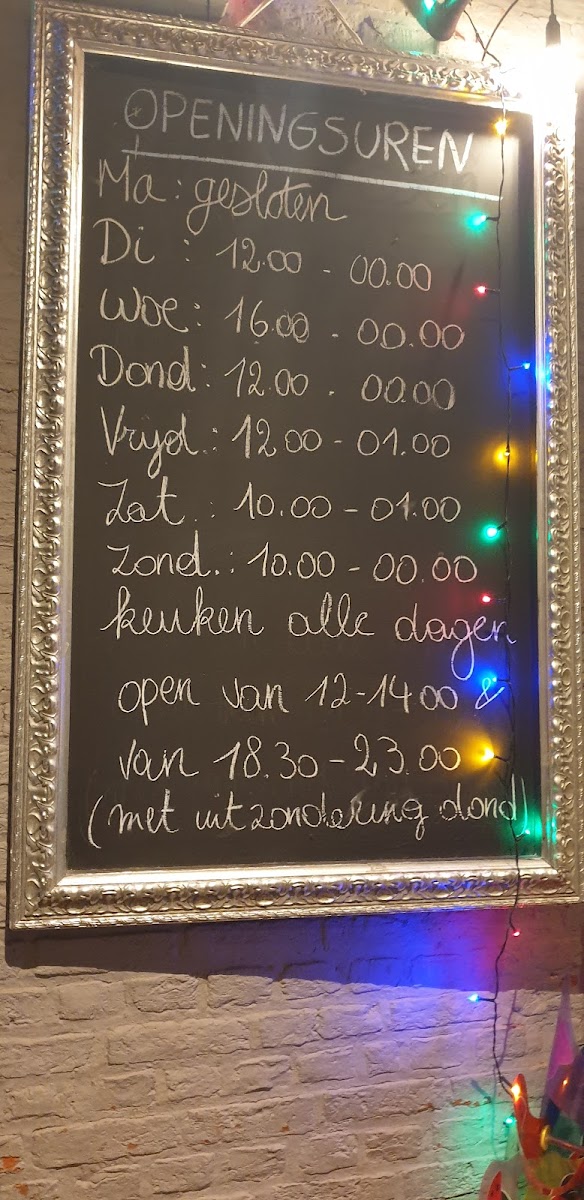 OPENINGSUREN
Ma: gesloten
Di : 12.00 - 00.00
Woe: 16.00 - 00.00
Dond: 12.00 - 00.00
Vrijd.: 12.00 - 01.00
Zat.: 10.00 - 01.00
Zond.: 10.00 - 00.00
keuken alle dagen
open van 12-14 00 &
van 18.30 - 23.00
(met uitzondering dond)